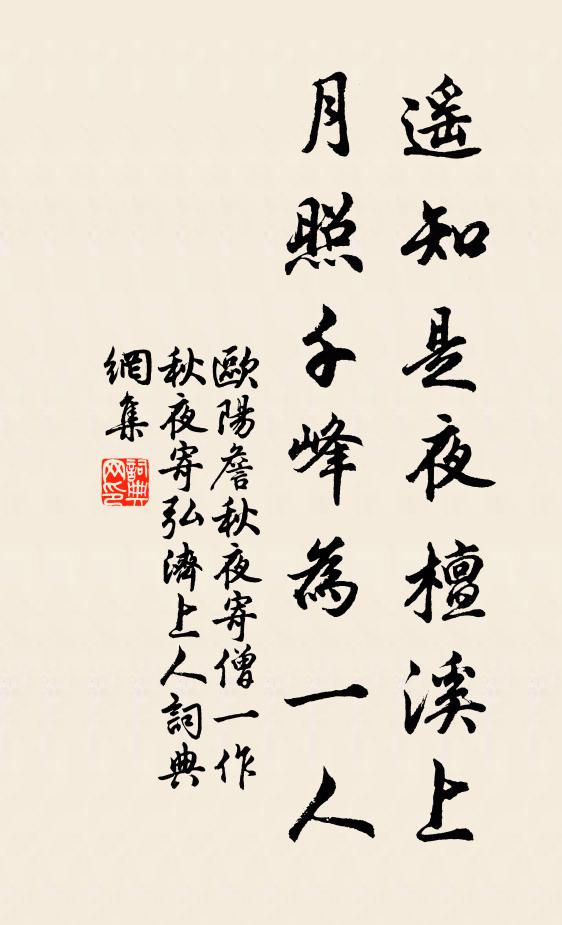 遥知是夜檀溪上
月照千峰為一人
歐陽詹秋夜寄僧一作
秋夜寄弘濟上人詞典
網集
詞典
网印